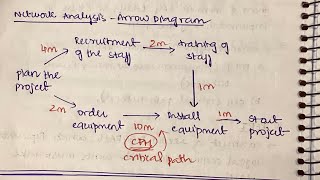 Network Analysis - Arrow Diagram
Recruitment 2m training of
4m of the staff staff
plan the
project 1m
2m order Install 1m start
equipment 10m equipment project
CPM
critical path